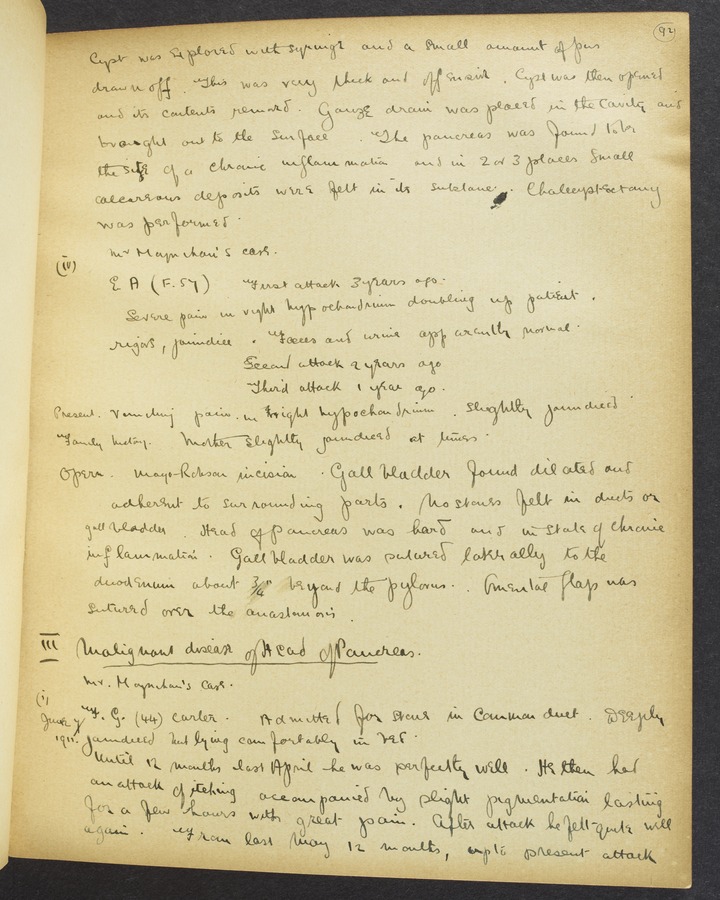 92
Cyst was explored with syringe and a small amount of pus
drawn off. This was very thick and offensive. Cyst was then opened
and its contents removed. Gauze drain was placed in the cavity and
brought out to the surface. The pancreas was found to be
the site of a chronic inflammation and in 2 or 3 places small
calcareous deposits were felt in its substance.
was performed.
Mr Moynihan's case.
(iv)
E A (F. 57) First attack 3 years ago.
Severe pain in right hypochondrium doubling up patient.
rigors, jaundice. Faeces and urine apparently normal.
Second attack 2 years ago
Third attack 1 year ago.
Present. Vomiting pain in right hypochondrium. Slightly jaundiced
Family history. Mother slightly jaundiced at times.
Opern. Mayo-Robson incision. Gall bladder found dilated and
adherent to surrounding parts. No stones felt in ducts or
gall bladder. Head of pancreas was hard and in state of chronic
inflammation. Gall bladder was sutured laterally to the
duodenum about 3/4" beyond the pylorus. Omental flap was
sutured over the anastomosis.
III Malignant disease of Head of Pancreas.
Mr. Moynihan's case.
(i)
June 7 F. G. (44) carter. Admitted for stone in common duct. Deeply
1911. jaundiced but lying comfortably in bed.
Until 12 months last April he was perfectly well. He then had
an attack of itching accompanied by slight pigmentation lasting
for a few hours with great pain. After attack he felt quite well
again. From last May 12 months, up to present attack